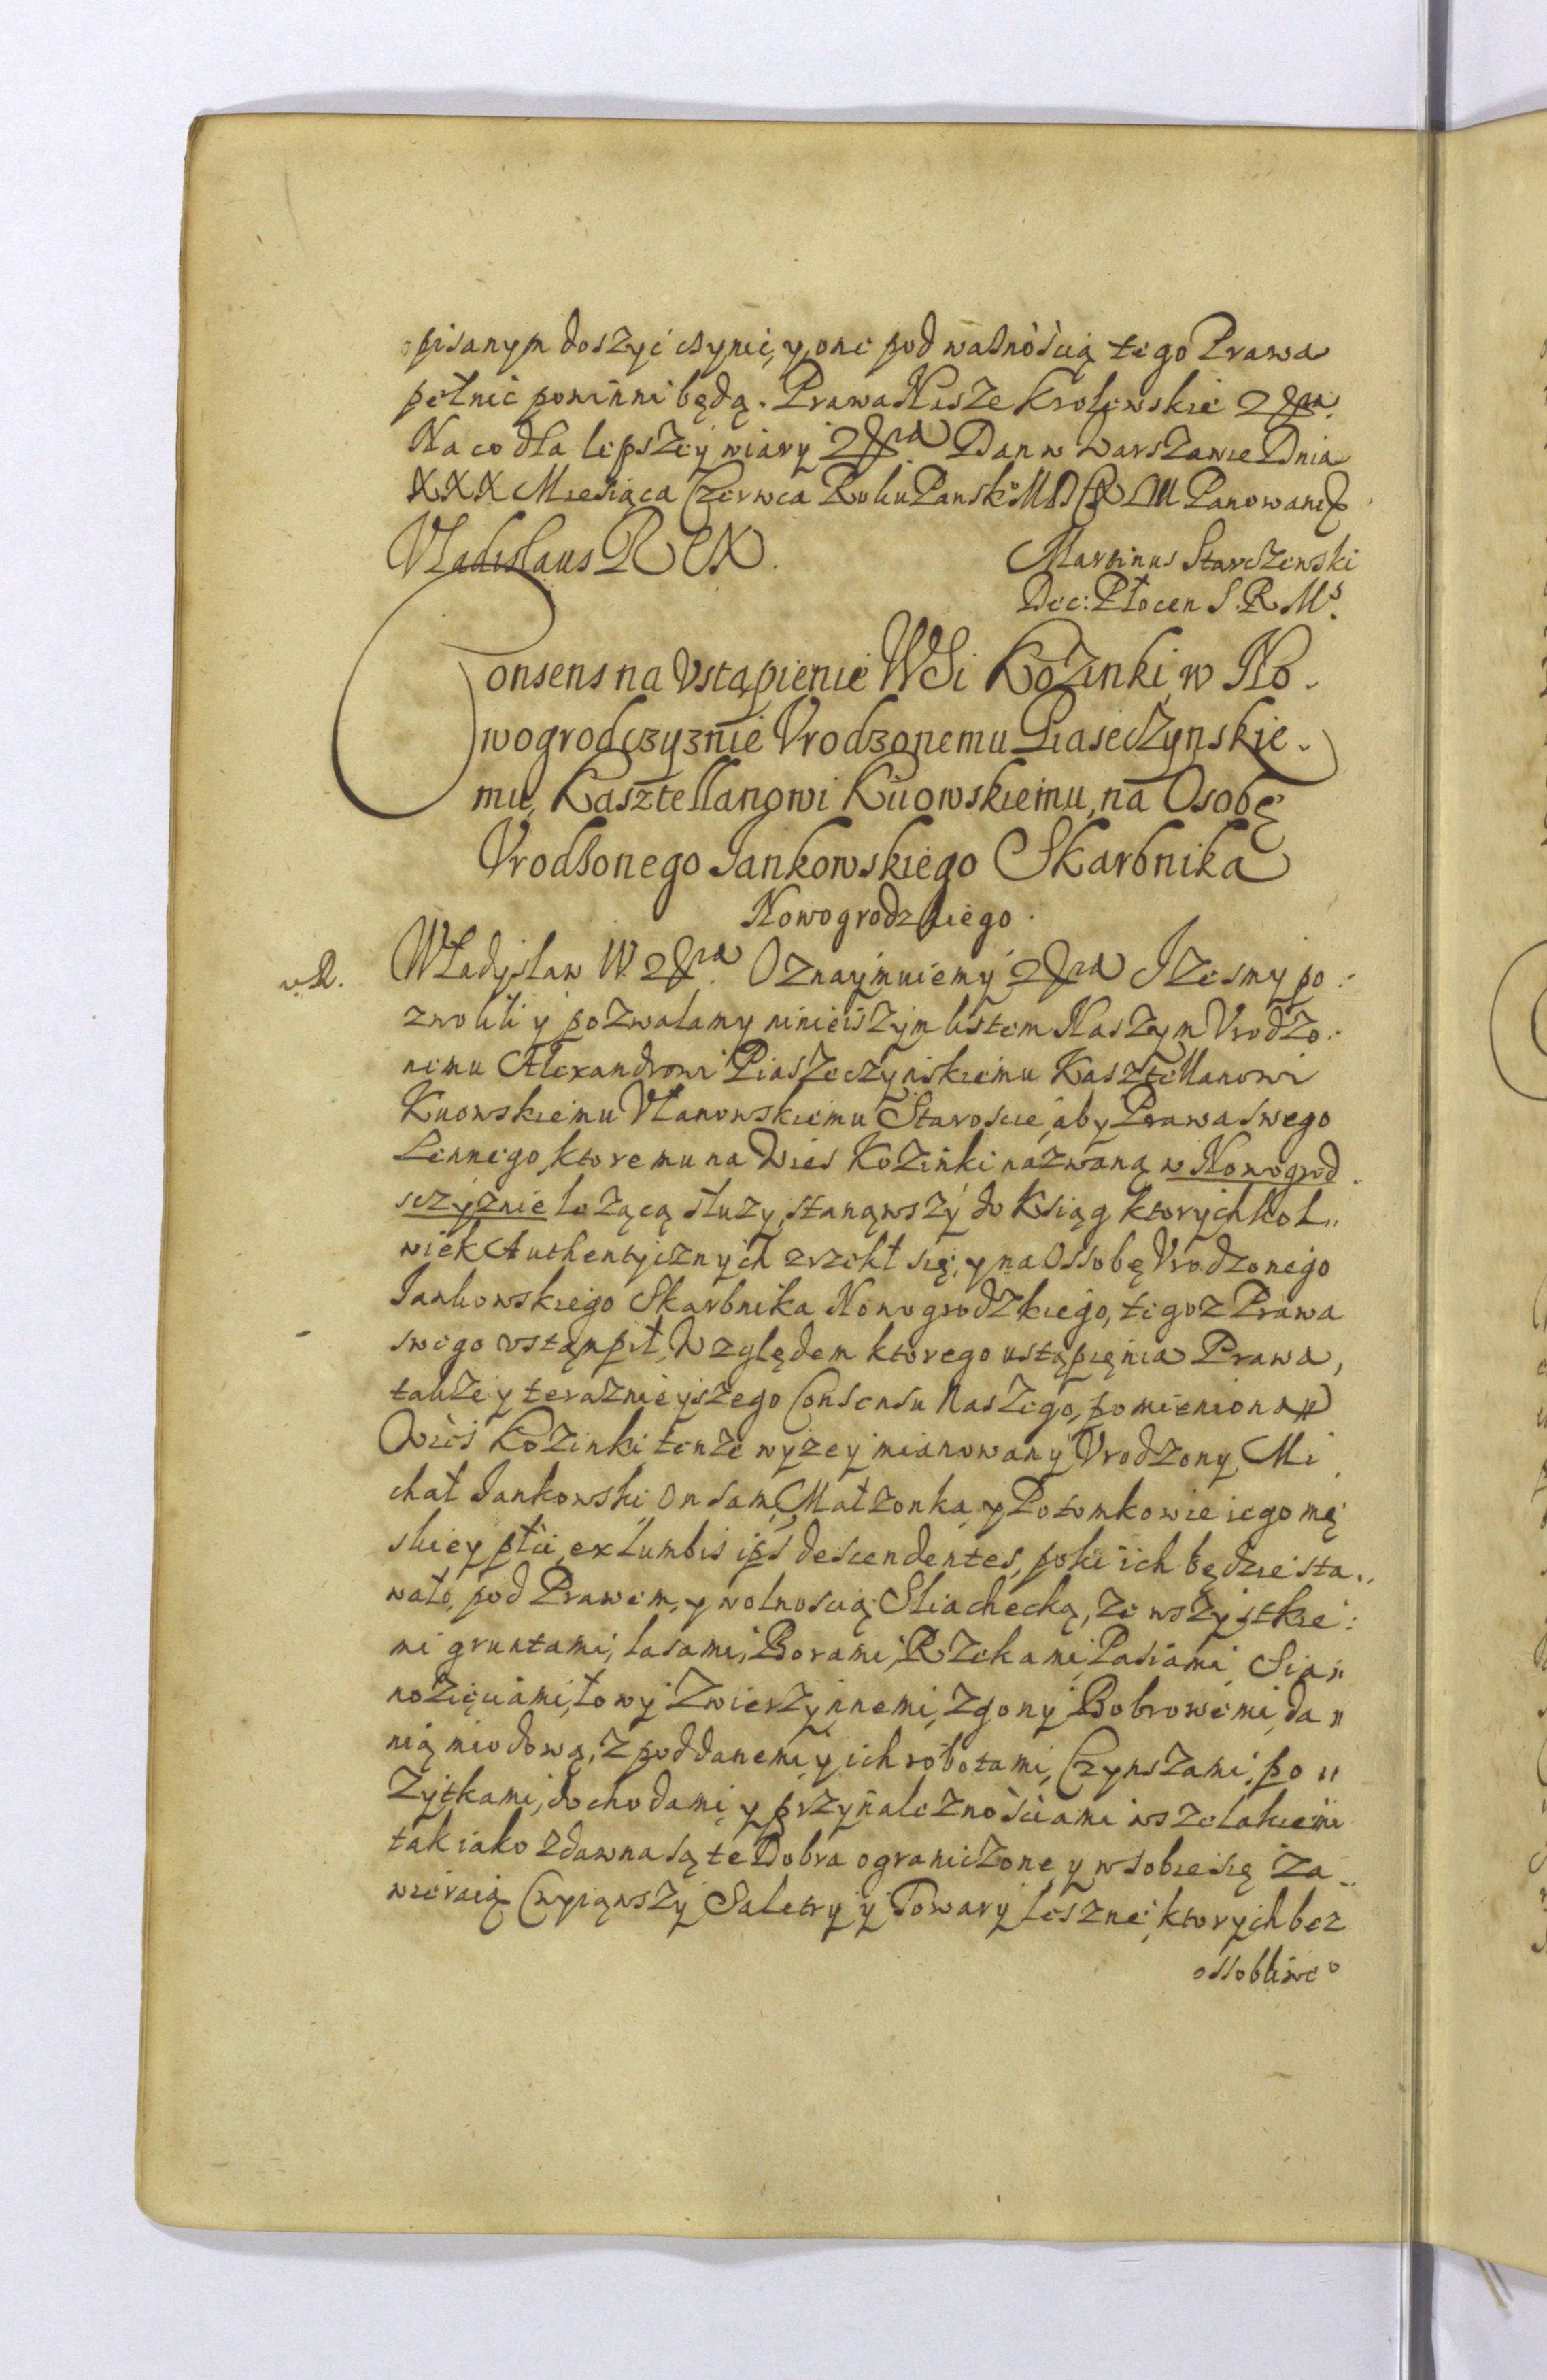 opisanym doszyć czynić, y onc pod ważnością tego Prawa
pełnić powinni będą. Prawa Nasze Krolewskie &tra.
Na co dla lepszey wiary &tra Dan w Warszawie Dnia
XXX Miesiąca Czerwca Roku Pansko Panowania
Vladislaus REX.
Martinus Starczewski
Dec: Płocen S. R. Ms.
Consens na Vstąpienie WSi Kozinki, w No-
wogrodczyznie Vrodzonemu Piaseczynskie-
mu, Kasztellanowi Kiiowskiemu, na Osobę
Vrodzonego Iankowskiego Skarbnika
Nowogrodzkiego.
Władysław IV &tra Oznaymuiemy &tra Iżesmy po:
zwolili y pozwalamy ninieiszym listem Naszym Vrodzo:
nemu Alexandrowi Piaszeczynskiemu Kasztellanowi
Kiiowskiemu Vlanowskiemu Staroście, aby Prawa swego
Lennego, ktore mu na Wies Kozinki nazwaną w Nowogrod.
sczyznie leżącą służy, stanąwszy do Ksiąg ktorychkol„
wiek Authentycznych zrzekł się, y na Ossobę Vrodzonego
Iankowskiego Skarbnika Nowogrodzkiego, tegoz Prawa
swego vstąmpił, Względem ktorego ustąpięnia Prawa,
także y teraznieyszego Consensu Naszego, pomieniona„
Wieś Kozinki tenże wyzey mianowany Vrodzony Mi
chał Iankowski, on sam, Małżonka, y Potomkowie iego mę
skiey płci, ex Lumbis ips descendentes, poki ich będzie sta„
wało, pod Prawem, y wolnoscią Sliachecką, ze wszystkie:
mi gruntami, lasami, Borami, Rzekami, Pasiami Sia„
nożęciami, łowy Zwierzynnemi, zgony Bobrowemi, da„
nią miodową, z poddanemi y ich robotami, Czynszami, po„
Zytkami, dochodami, y przynależnościami wszelakiemi
tak iako zdawna są te Dobra ograniczone, y w sobie się za„
wieraią (wyiąwszy Saletry y Towary leszne, ktorych bez
ossobliweo